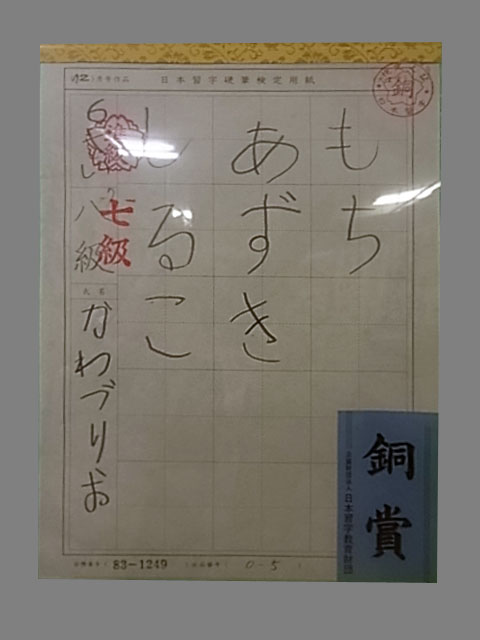 日本習字硬筆検定用紙
もち
あずき
しるこ
6さい
八級
七級
氏名
かわづりお
銅
銅賞
公益財団法人 日本習字教育財団
83-1249
0-5